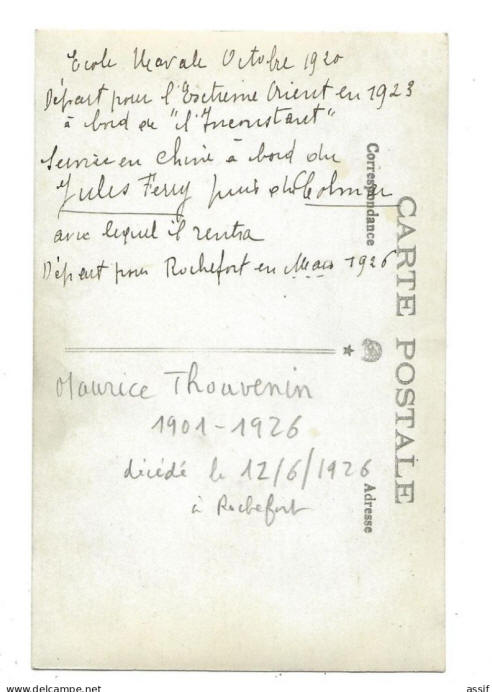 Ecole Navale Octobre 1920
Départ pour l'Extrême Orient en 1923
à bord de "l'Inconstant"
Service en Chine à bord du
Jules Ferry puis du Colmar
avec lequel il rentra
Départ pour Rochefort en Mars 1926
Maurice Thouvenin
1901-1926
décédé le 12/6/1926
à Rochefort
CARTE POSTALE
Correspondance
Adresse
www.delcampe.net
assif